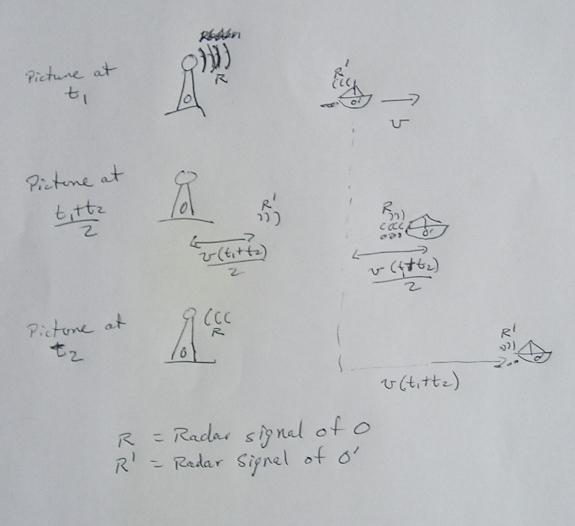 Picture at
t₁
R
R'
O
O'
v
Picture at
t₁+t₂
2
O
R'
v(t₁+t₂)
2
R
O'
v(t₁+t₂)
2
Picture at
t₂
O
R
R'
O'
v(t₁+t₂)
R = Radar signal of O
R' = Radar Signal of O'